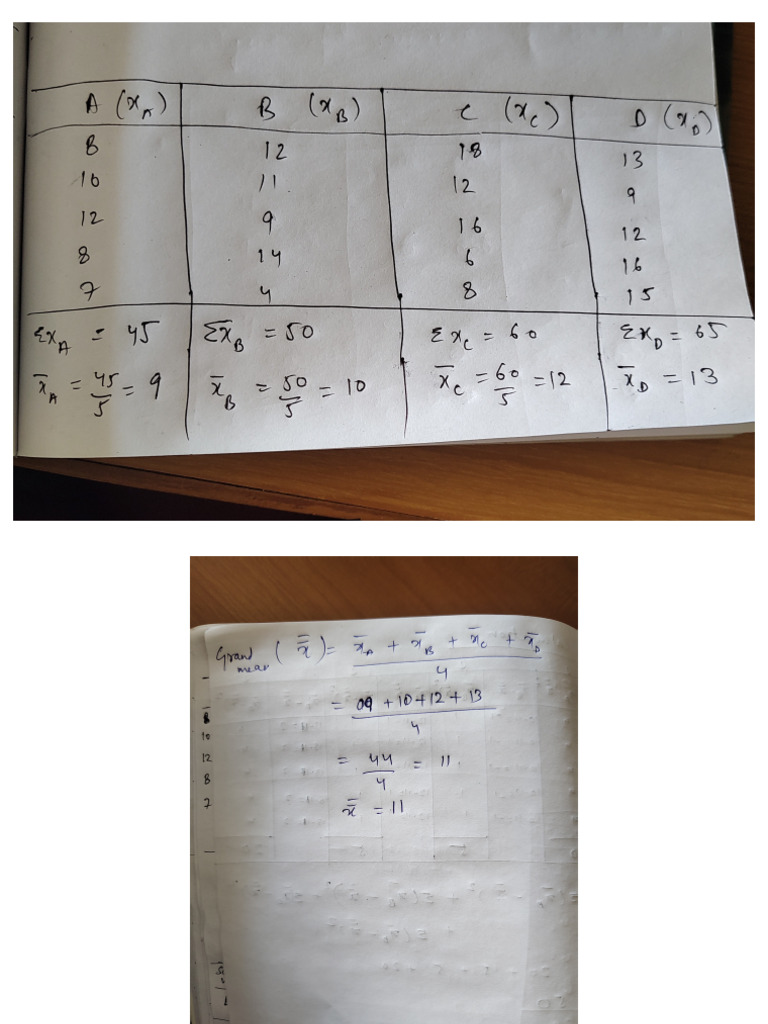 A (x_A) B (x_B) C (x_C) D (x_D)
8 12 18 13
10 11 12 9
12 9 16 12
8 14 6 16
7 4 8 15
Σx_A = 45 Σx̄_B = 50 Σx_C = 60 Σx_D = 65
x̄_A = 45/5 = 9 x̄_B = 50/5 = 10 x̄_C = 60/5 = 12 x̄_D = 13
Grand mean (x̿) = x̄_A + x̄_B + x̄_C + x̄_D / 4
= 09 + 10 + 12 + 13 / 4
= 44/4 = 11.
x̿ = 11
8
10
12
8
7